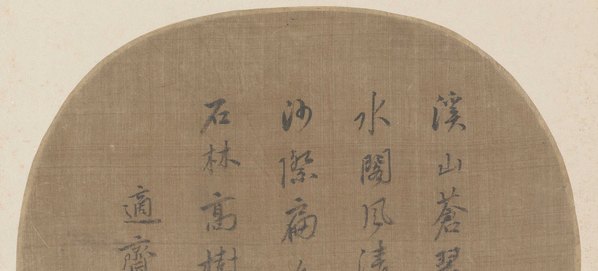 溪山蒼翠
水閣風清
沙際扁
石林高樹
適齋